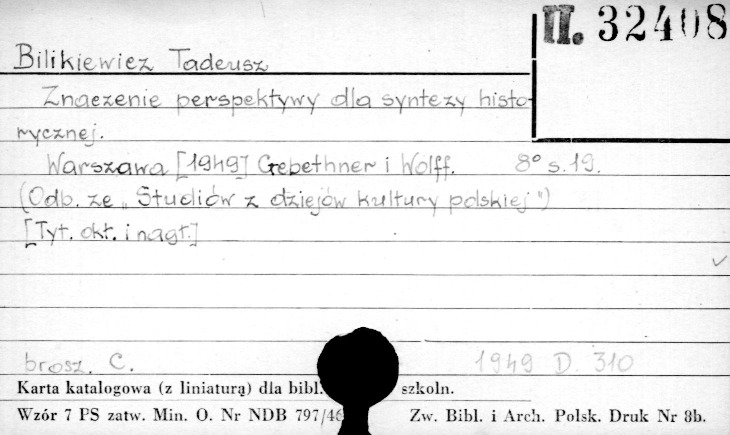 II. 32408
Bilikiewicz Tadeusz
Znaczenie perspektywy dla syntezy histo-
rycznej.
Warszawa [1949] Gebethner i Wolff. 8° s. 19.
(Odb. ze „Studiów z dziejów kultury polskiej")
[Tyt. okł. i nagł.]
brosz. C. 1949 D. 310
Karta katalogowa (z liniaturą) dla bibl. szkoln.
Wzór 7 PS zatw. Min. O. Nr NDB 797/46 Zw. Bibl. i Arch. Polsk. Druk Nr 8b.